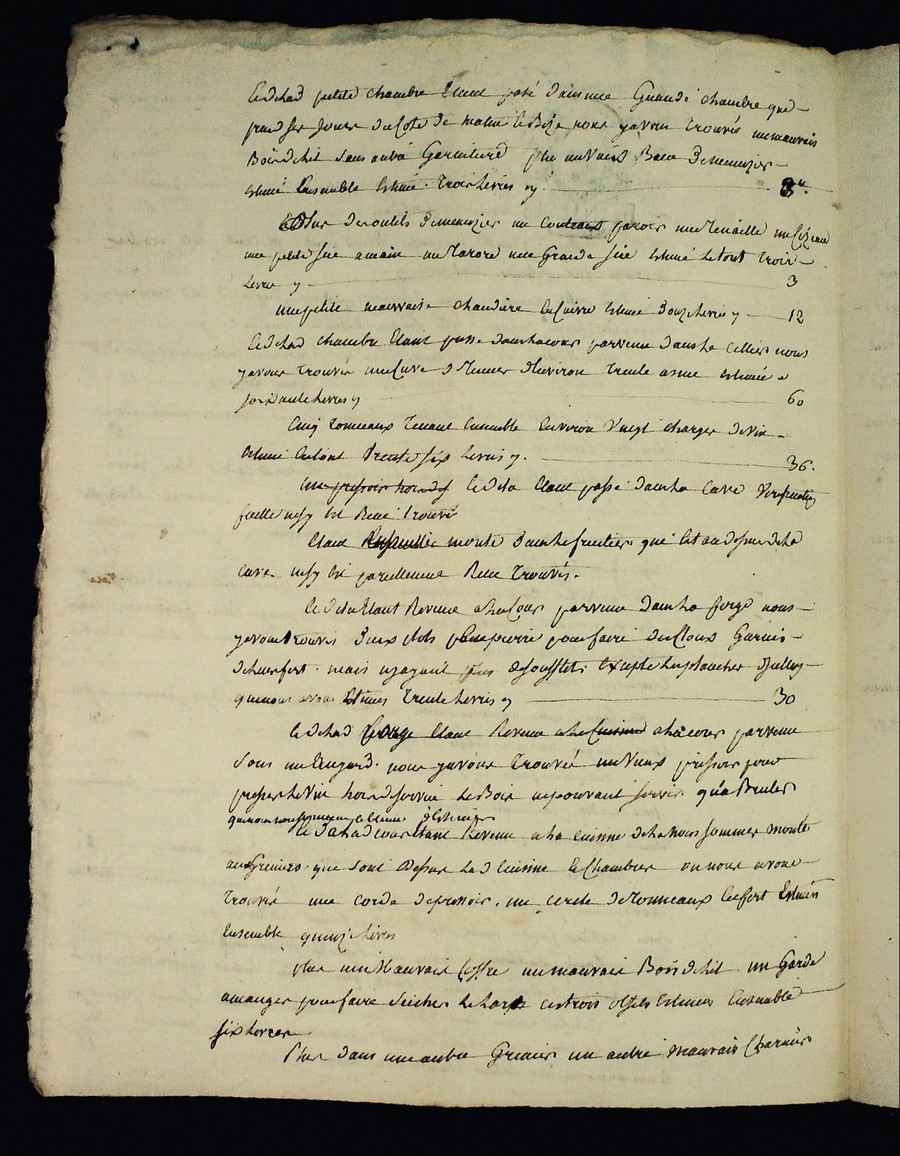 de lad petite chambre Etant passé dans une Grande chambre qui
prend ses jours du Coté de matin & Bize nous y avons trouvés un mauvais
Bois de lit sans autre Garniture plus un vieux Banc de menuzier
Estimé Ensemble Estimé trois Livres 3
Plus des outils de menuzier un Couteaux paroir une tenaille un Cizeau
une petite sie a main un tarare une Grande sie Estimé le tout trois
Livres 3
une petite mauvaise chaudiere En Cuivre Estimé Douze livres 12
de lad chambre Etant passé dans la cour parvenu dans le cellier nous
y avons trouvés une Cuve d'Environ trente asnée Estimée a
soixante Livres 60
Cinq tonneaux tenant Ensemble Environ Vingt charges de vin
Estimé En tout trente six Livres 36
un pressoir hors de le dela Etant passé dans la cave
il ne s'y Est Rien trouvé
Etant Ensuitte monté dans le fruitier qui Est au dessus de la
Cave ne s'y Est pareillement Rien trouvés
de dela Etant Revenu a la Cour parvenu dans la forge nous
y avons trouvés Deux pour faire des Cloux Garnis
mais n'ayant pas de soufflets Excepté un plancher
que nous avons Estimés trente Livres 30
de lad forge Etant Revenu a la Cuisine a la cour parvenu
sous un Engard nous y avons trouvé un vieux pressoir pour
presser le vin hors de service le Bois ne pouvant servir qu'a Bruler
que nous d'Estimer
de lad cour Etant Revenu a la Cuisine de la nous sommes monté
au Greniers que sont dessus lad Cuisine & Chambres ou nous avons
trouvés une corde de pressoir, un cercle de tonneaux En fert Estimés
Ensemble quinze Livres
plus un Mauvais Coffre un mauvais Bois de lit un Garde
a manger pour faire seicher ces trois objets Estimés Ensemble
six Livres
Plus dans une autre Grenier un autre mauvais Charnier